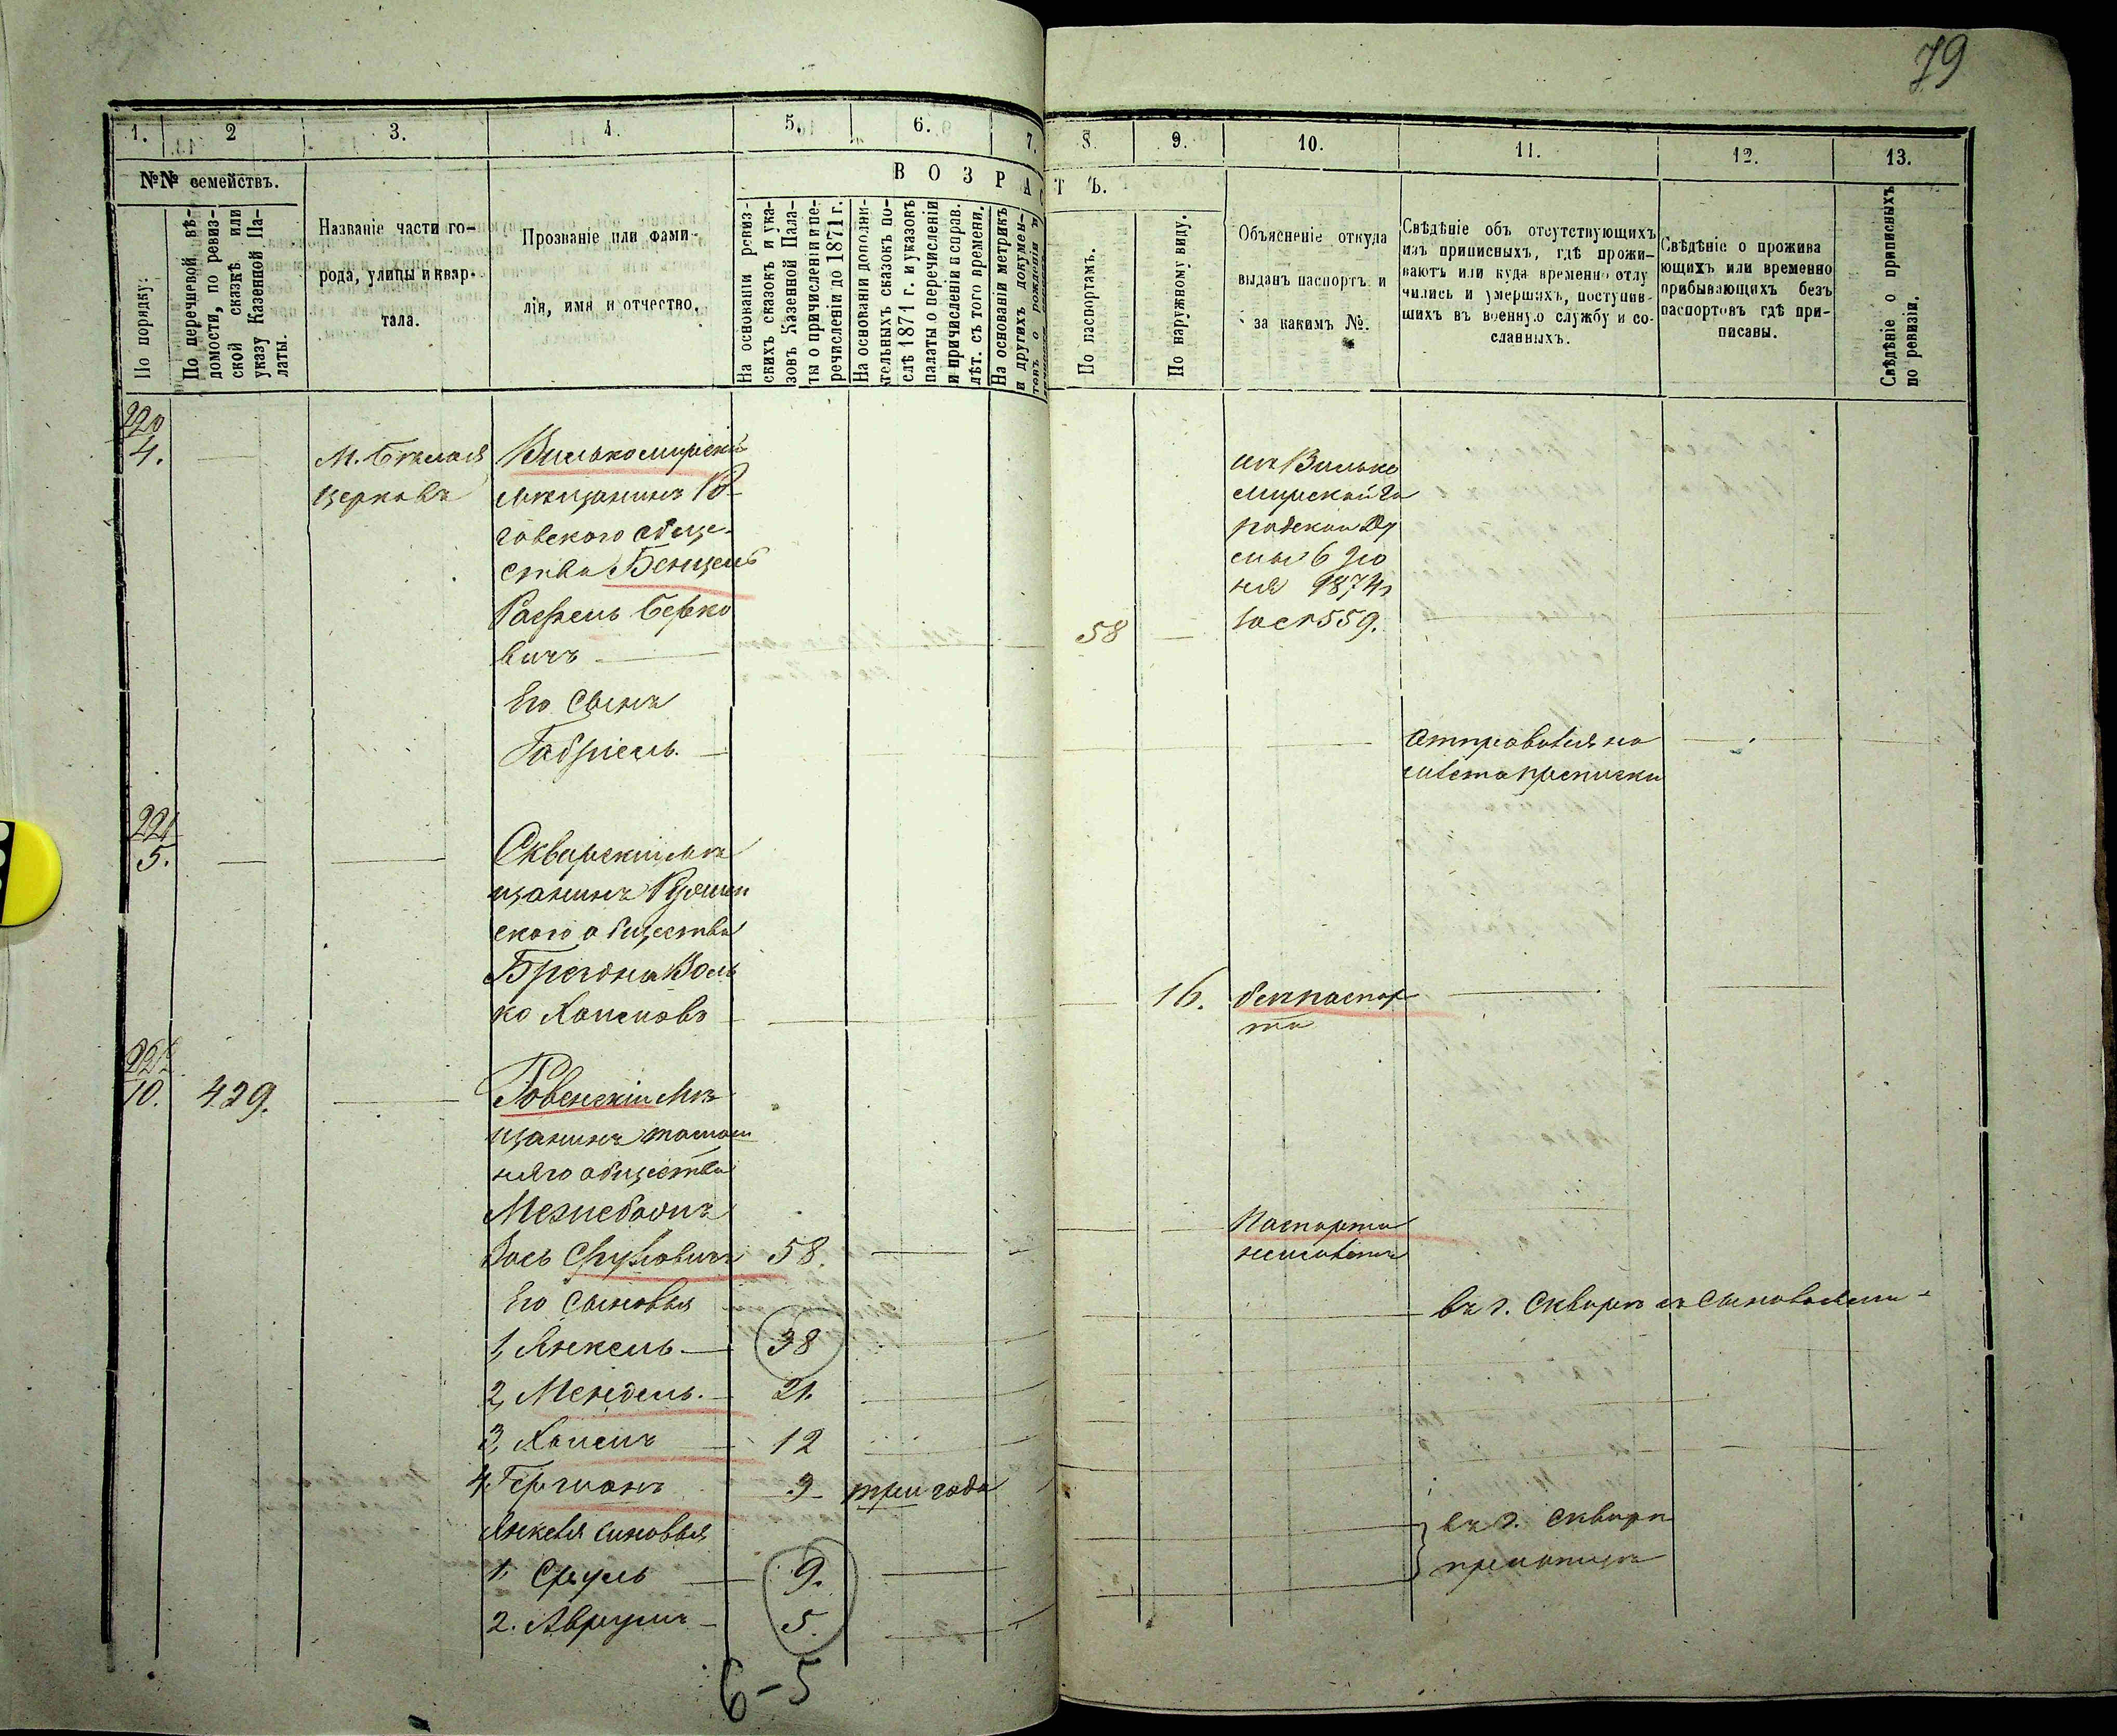 79
1. 2 3. 4. 5. 6. 7. 8. 9. 10. 11. 12. 13.
№№ семействъ.
ВОЗРАСТЪ.
По порядку.
По перечневой вѣ-
домости, по ревиз-
ской сказкѣ или
указу Казенной Па-
латы.
Названіе части го-
рода, улицы и квар-
тала.
Прозваніе или фами-
лія, имя и отчество.
На основаніи ревиз-
скихъ сказокъ и ука-
зовъ Казенной Пала-
ты о причисленіи и пе-
речисленіи до 1871 г.
На основаніи дополни-
тельныхъ сказокъ по-
слѣ 1871 г. и указовъ
палаты о перечисленіи
и причисленіи исправ.
лѣт. съ того времени.
На основаніи метрикъ
и другихъ докумен-
товъ о рожденіи и
По паспортамъ.
По наружному виду.
Объясненіе откуда
выданъ паспортъ и
за какимъ №.
Свѣдѣніе объ отсутствующихъ
изъ приписныхъ, гдѣ прожи-
ваютъ или куда временно отлу
чились и умершихъ, поступив-
шихъ въ военную службу и со-
сланныхъ.
Свѣдѣніе о прожива
ющихъ или временно
прибывающихъ безъ
паспортовъ гдѣ при-
писаны.
Свѣдѣніе о приписныхъ
по ревизіи.
220
4.
М. Бѣлая
церковь
Вилькомирскій
мѣщанинъ
говского обще-
ства Бенцель
Рафель Берко
вичъ
58
изъ Вилько
мирской Го
родской Ду
мы 6 Ію
ня 1874
за № 559.
Его сынъ
Габріель.
отправился на
мѣсто приписки
221
5.
Сквирскій мѣ
щанинъ
ского общества
Волько
Хаимовъ
16.
безъ паспор
та
222
10. 429.
Ровенскій мѣ
щанинъ тамош
няго общества
Межебовъ
Іось Сруловичъ 58.
Паспорта
неимѣетъ
Его сыновья
въ г. Сквирѣ съ сыновьями
1, Янкель 38
2, Мендель. 21.
3, Хаимъ 12
4, Гершонъ 9 три года
Янкеля сыновья
1, Сруль 9.
2. Аврумъ 5.
въ г. Сквирѣ
при отцѣ
6-5